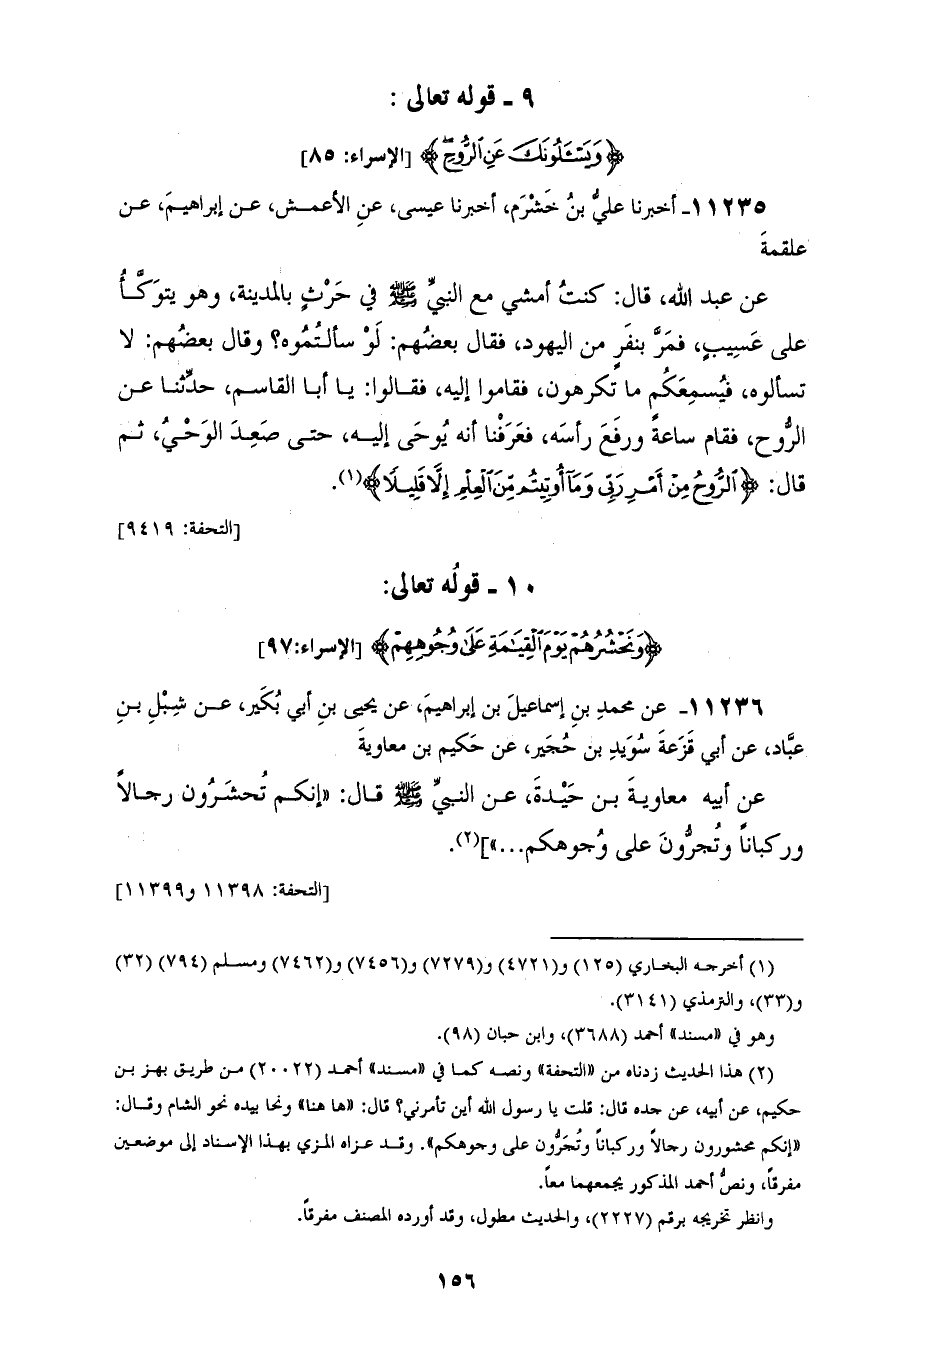 ٩ ـ قوله تعالى :
﴿وَيَسْـَٔلُونَكَ عَنِ ٱلرُّوحِ ۖ﴾ [الإسراء: ٨٥]
١١٢٣٥ـ أخبرنا عليُّ بنُ خَشْرَم، أخبرنا عيسى، عنِ الأعمـش، عـن إبراهيـمَ، عـن
علقمةَ
عن عبد الله، قال: كنتُ أمشي مع النبيِّ ﷺ في حَرْثٍ بالمدينة، وهو يتوَكَّـأُ
على عَسِيبٍ، فمَرَّ بنفَرٍ من اليهود، فقال بعضُهم: لَوْ سألـتُمُوه؟ وقال بعضُهم: لا
تسألوه، فيُسمِعَكُم ما تكرهون، فقاموا إليه، فقـالوا: يـا أبـا القاسـم، حدِّثنـا عـن
الرُّوح، فقام ساعةً ورفَعَ رأسَه، فعَرَفْنا أنه يُوحَى إليـه، حتـى صَعِدَ الوَحْيُ، ثـم
قال: ﴿ٱلرُّوحُ مِنْ أَمْرِ رَبِّى وَمَآ أُوتِيتُم مِّنَ ٱلْعِلْمِ إِلَّا قَلِيـلًا﴾(١).
[التحفة: ٩٤١٩]
١٠ ـ قولُه تعالى:
﴿وَنَحْشُرُهُمْ يَوْمَ ٱلْقِيَـٰمَةِ عَلَىٰ وُجُوهِهِمْ﴾ [الإسراء:٩٧]
١١٢٣٦ـ عن محمدِ بنِ إسماعيلَ بن إبراهيمَ، عن يحيى بنِ أبي بُكَير، عـن شِبْلِ بـنِ
عبَّاد، عن أبي قَزَعةَ سُوَيدِ بن حُجَير، عن حَكيم بن معاويةَ
عن أبيه معاويـةَ بـن حَيْـدةَ، عـن النبيِّ ﷺ قـال: «إنكـم تُحشَـرُون رجـالاً
وركباناً وتُجرُّونَ على وُجوهكم...»](٢).
[التحفة: ١١٣٩٨ و١١٣٩٩]
(١) أخرجه البخاري (١٢٥) و(٤٧٢١) و(٧٢٧٩) و(٧٤٥٦) و(٧٤٦٢) ومسلم (٧٩٤) (٣٢)
و(٣٣)، والترمذي (٣١٤١).
وهو في «مسند» أحمد (٣٦٨٨)، وابن حبان (٩٨).
(٢) هذا الحديث زدناه من «التحفة» ونصه كمـا في «مسند» أحمـد (٢٠٠٢٢) مـن طريق بهـز بـن
حكيم، عن أبيه، عن جده قال: قلت يا رسول الله أين تأمرني؟ قال: «ها هنا» ونحا بيده نحو الشام وقـال:
«إنكم محشورون رجالاً وركباناً وتُجَرُّون على وجوهكم». وقـد عـزاه المـزي بهـذا الإسـناد إلى موضعـين
مفرقاً، ونصُّ أحمد المذكور يجمعهما معاً.
وانظر تخريجه برقم (٢٢٢٧)، والحديث مطول، وقد أورده المصنف مفرقاً.
١٥٦